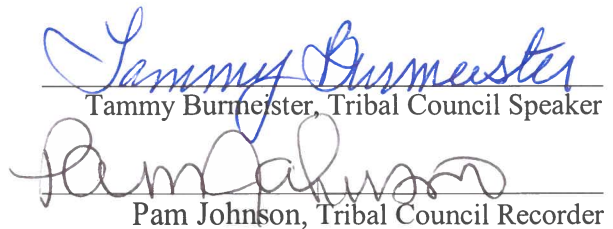 Tammy Burmeister
Tammy Burmeister, Tribal Council Speaker
Pam Johnson
Pam Johnson, Tribal Council Recorder